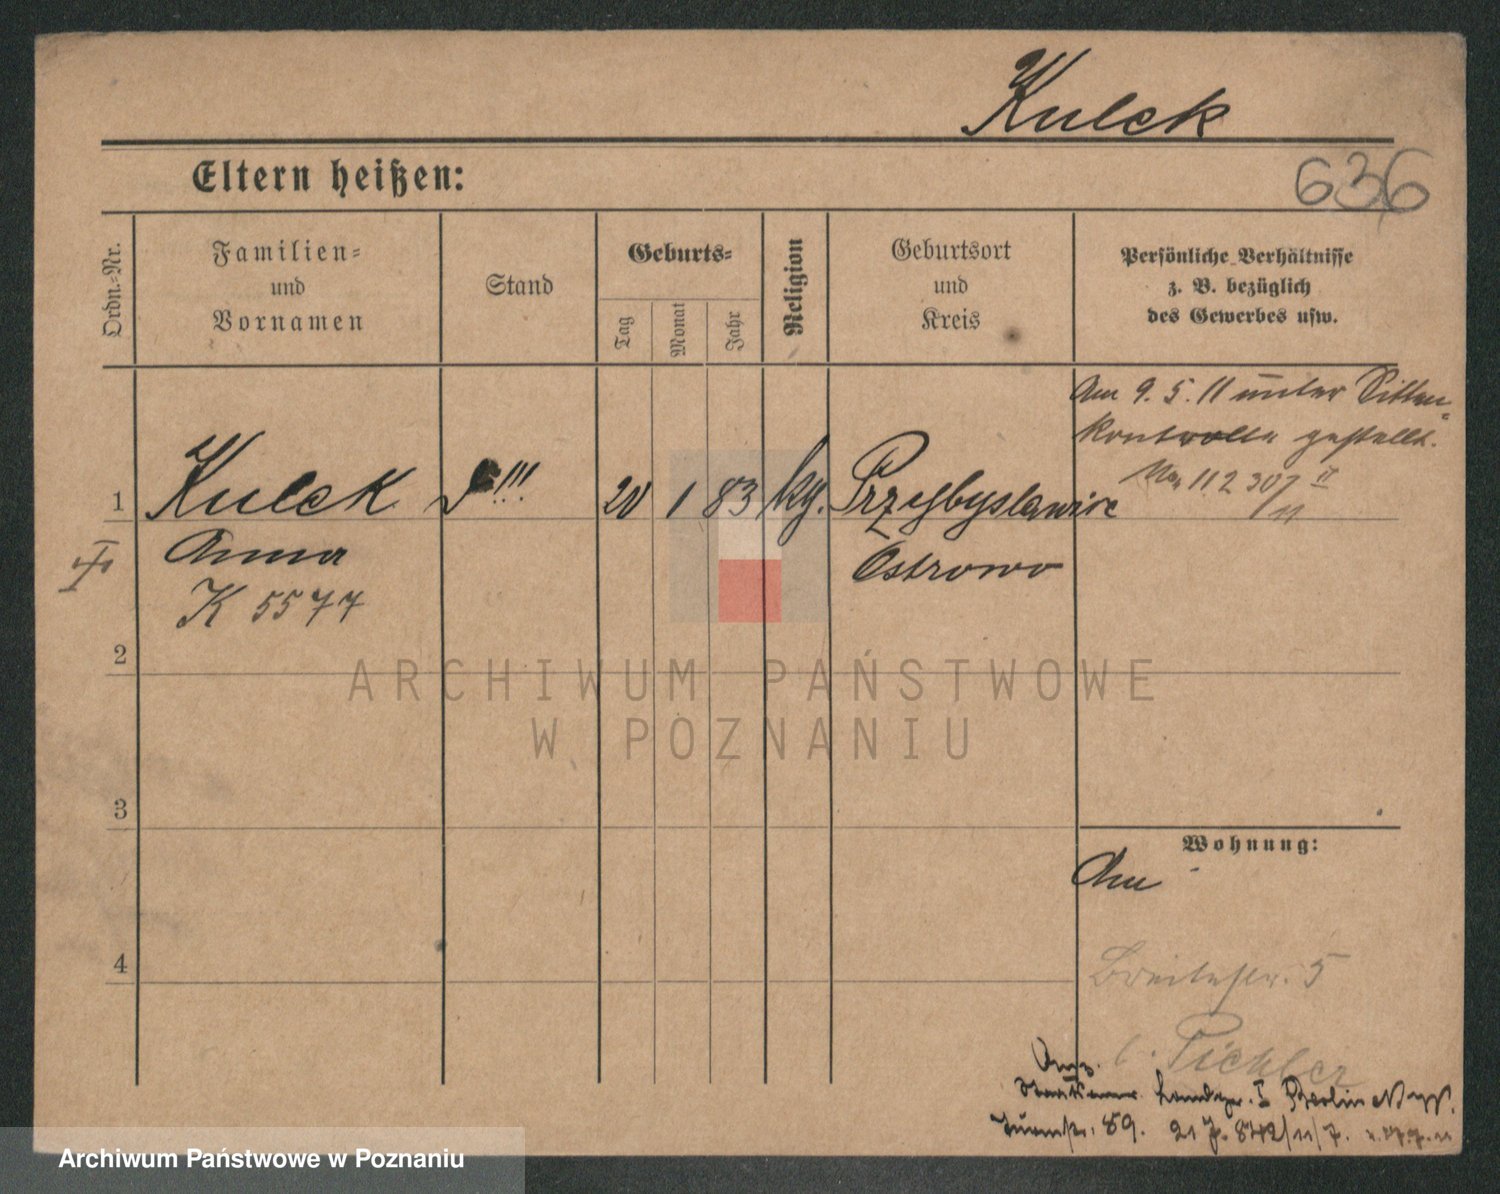 Kulck
636
Eltern heißen:
Ordn.-Nr.
Familien-
und
Vornamen
Stand
Geburts-
Tag
Monat
Jahr
Religion
Geburtsort
und
Kreis
Persönliche Verhältnisse
z. B. bezüglich
des Gewerbes usw.
Am 9. 5. 11 unter Sitten-
kontrolle gestellt.
112 307/11 II
1
Kulck
!!!
20
1
83
kg.
Przybyslawice
Anna
Ostrowo
K 5577
2
3
4
Wohnung:
Am
Breitestr. 5
b. Pichler
Anz.
Landger. I Berlin NW.
Turmstr. 89. 21 J. 842/11/7.
ARCHIWUM PAŃSTWOWE
W POZNANIU
Archiwum Państwowe w Poznaniu